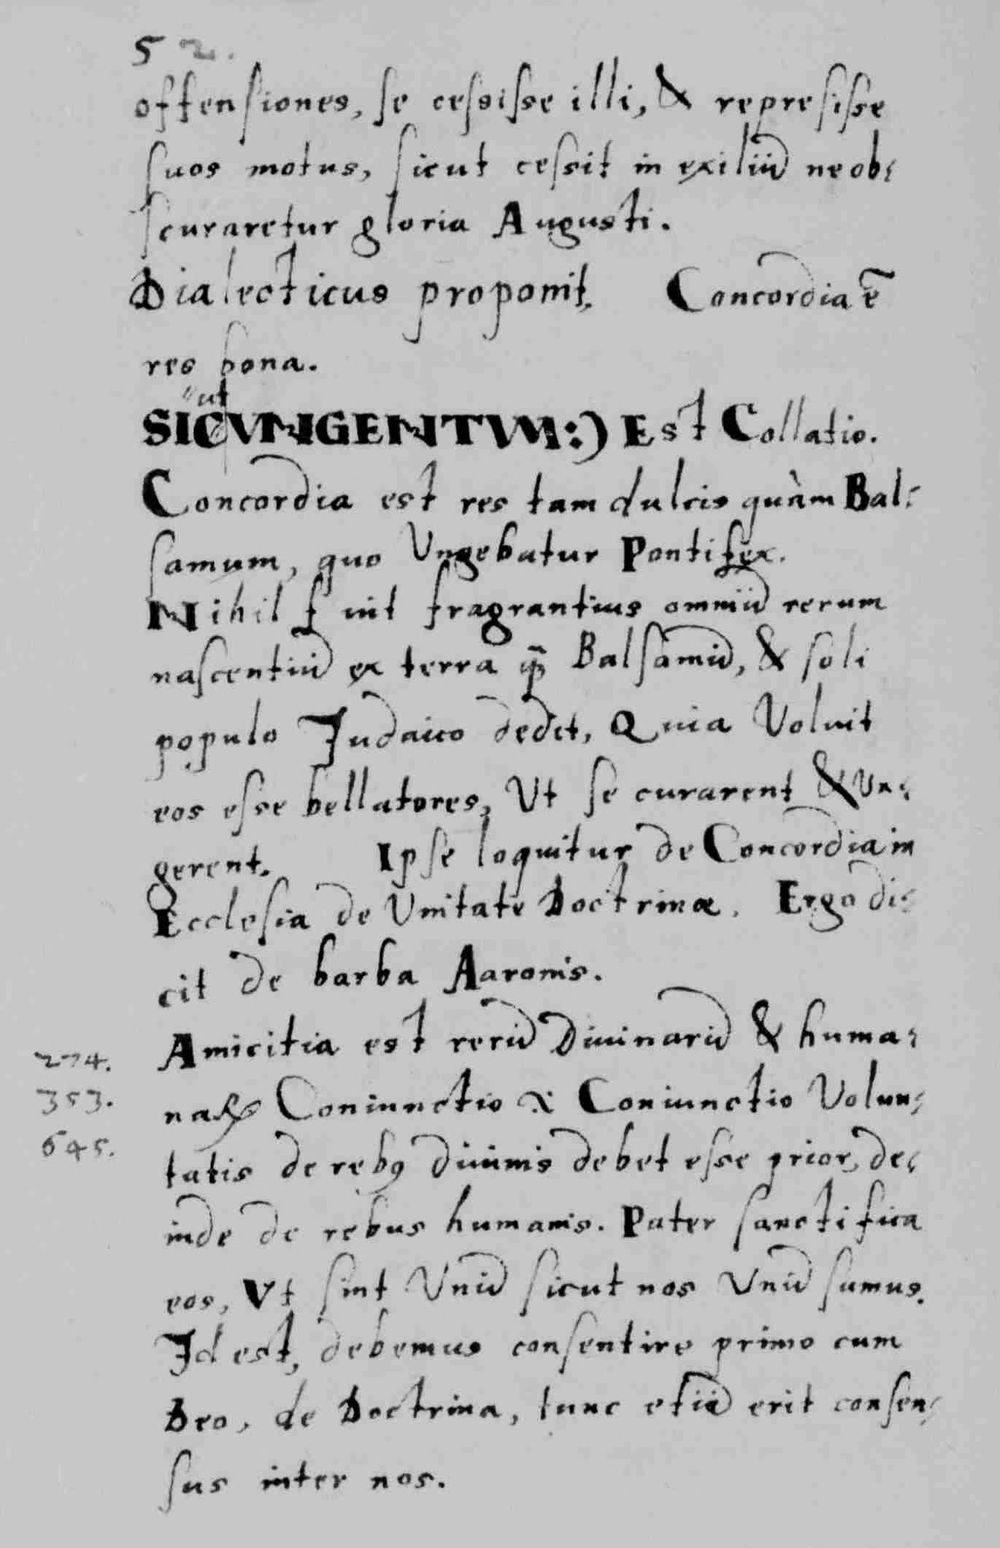 52.
offensiones, se cessisse illi, & repressisse
suos motus, sicut cessit in exiliũ ne ob-
scuraretur gloria Augusti.
Dialecticus proponit. Concordia ẽ
res bona.
ut
SICUNGENTVM:) Est Collatio.
Concordia est res tam dulcis quàm Bal-
samum, quo Vngebatur Pontifex.
Nihil fuit fragrantius omniũ rerum
nascentiũ ex terra qͫ Balsamũ, & soli
populo Judaico dedit, Quia Voluit
eos esse bellatores, Vt se curarent & Vn-
gerent. Ipse loquitur de Concordia in
Ecclesia de Vnitate Doctrinæ. Ergo di-
cit de barba Aaronis.
Amicitia est rerũ Diuinarũ & huma-
274.
naꝝ Coniunctio .i. Coniunctio Volun-
353.
tatis de rebꝯ diuinis debet esse prior, de-
645.
inde de rebus humanis. Pater sanctifica
eos, Vt sint Vnũ sicut nos Vnũ sumus.
Id est, debemus consentire primo cum
Deo, de Doctrina, tunc etiã erit consen-
sus inter nos.